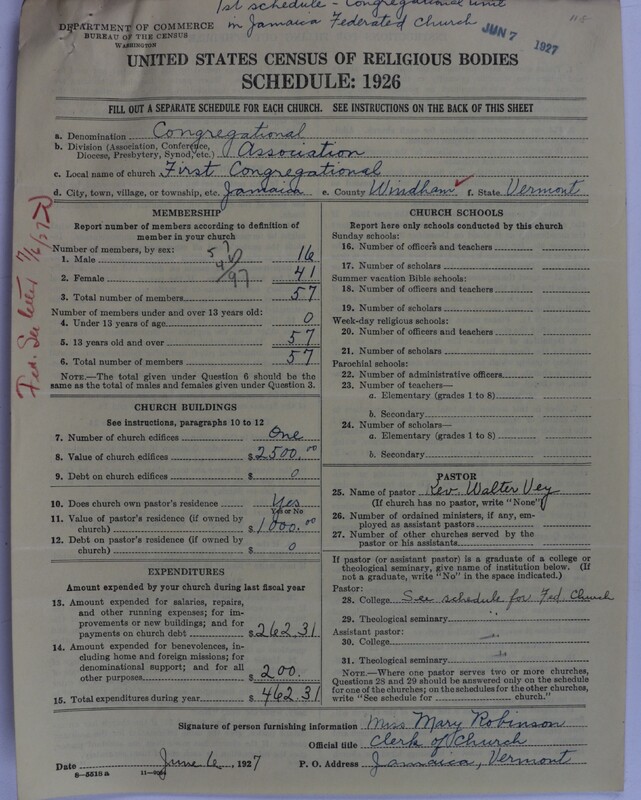 1st schedule - Congregational unit
in Jamaica Federated Church
JUN 7 1927
118
DEPARTMENT OF COMMERCE
BUREAU OF THE CENSUS
WASHINGTON
UNITED STATES CENSUS OF RELIGIOUS BODIES
SCHEDULE: 1926
FILL OUT A SEPARATE SCHEDULE FOR EACH CHURCH. SEE INSTRUCTIONS ON THE BACK OF THIS SHEET
a. Denomination Congregational
b. Division (Association, Conference, Diocese, Presbytery, Synod, etc.) Association
c. Local name of church First Congregational
d. City, town, village, or township, etc. Jamaica e. County Windham f. State Vermont
MEMBERSHIP
Report number of members according to definition of
member in your church
Number of members, by sex:
1. Male 16
2. Female 41
3. Total number of members 57
Number of members under and over 13 years old:
4. Under 13 years of age 0
5. 13 years old and over 57
6. Total number of members 57
NOTE.—The total given under Question 6 should be
same as the total of males and females given under Question 3.
CHURCH BUILDINGS
See instructions, paragraphs 10 to 12
7. Number of church edifices One
8. Value of church edifices $ 2500.00
9. Debt on church edifices $ 0
10. Does church own pastor's residence Yes
Yes or No
11. Value of pastor's residence (if owned by
church) $ 1000.00
12. Debt on pastor's residence (if owned by
church) $ 0
EXPENDITURES
Amount expended by your church during last fiscal year
13. Amount expended for salaries, repairs,
and other running expenses; for im-
provements or new buildings; and for
payments on church debt $ 262.31
14. Amount expended for benevolences,
including home and foreign missions; for
denominational support; and for all
other purposes $ 200.
15. Total expenditures during year $ 462.31
CHURCH SCHOOLS
Report here only schools conducted by this church
Sunday schools:
16. Number of officers and teachers
17. Number of scholars
Summer vacation Bible schools:
18. Number of officers and teachers
19. Number of scholars
Week-day religious schools:
20. Number of officers and teachers
21. Number of scholars
Parochial schools:
22. Number of administrative officers
23. Number of teachers—
a. Elementary (grades 1 to 8)
b. Secondary
24. Number of scholars—
a. Elementary (grades 1 to 8)
b. Secondary
PASTOR
25. Name of pastor Rev. Walter Vey
(If church has no pastor, write "None")
26. Number of ordained ministers, if any, em-
ployed as assistant pastors
27. Number of other churches served by the
pastor or his assistants
If pastor (or assistant pastor) is a graduate of a college or
theological seminary, give name of institution below. (If
not a graduate, write "No" in the space indicated.)
Pastor:
28. College See schedule for Fed. Church
29. Theological seminary
Assistant pastor:
30. College
31. Theological seminary
NOTE.—Where one pastor serves two or more churches,
Questions 28 and 29 should be answered only on the schedule
for one of the churches; on the schedules for the other churches,
write "See schedule for ______ church."
Signature of person furnishing information Miss Mary Robinson
Official title Clerk of Church
Date June 6, 1927 P. O. Address Jamaica, Vermont